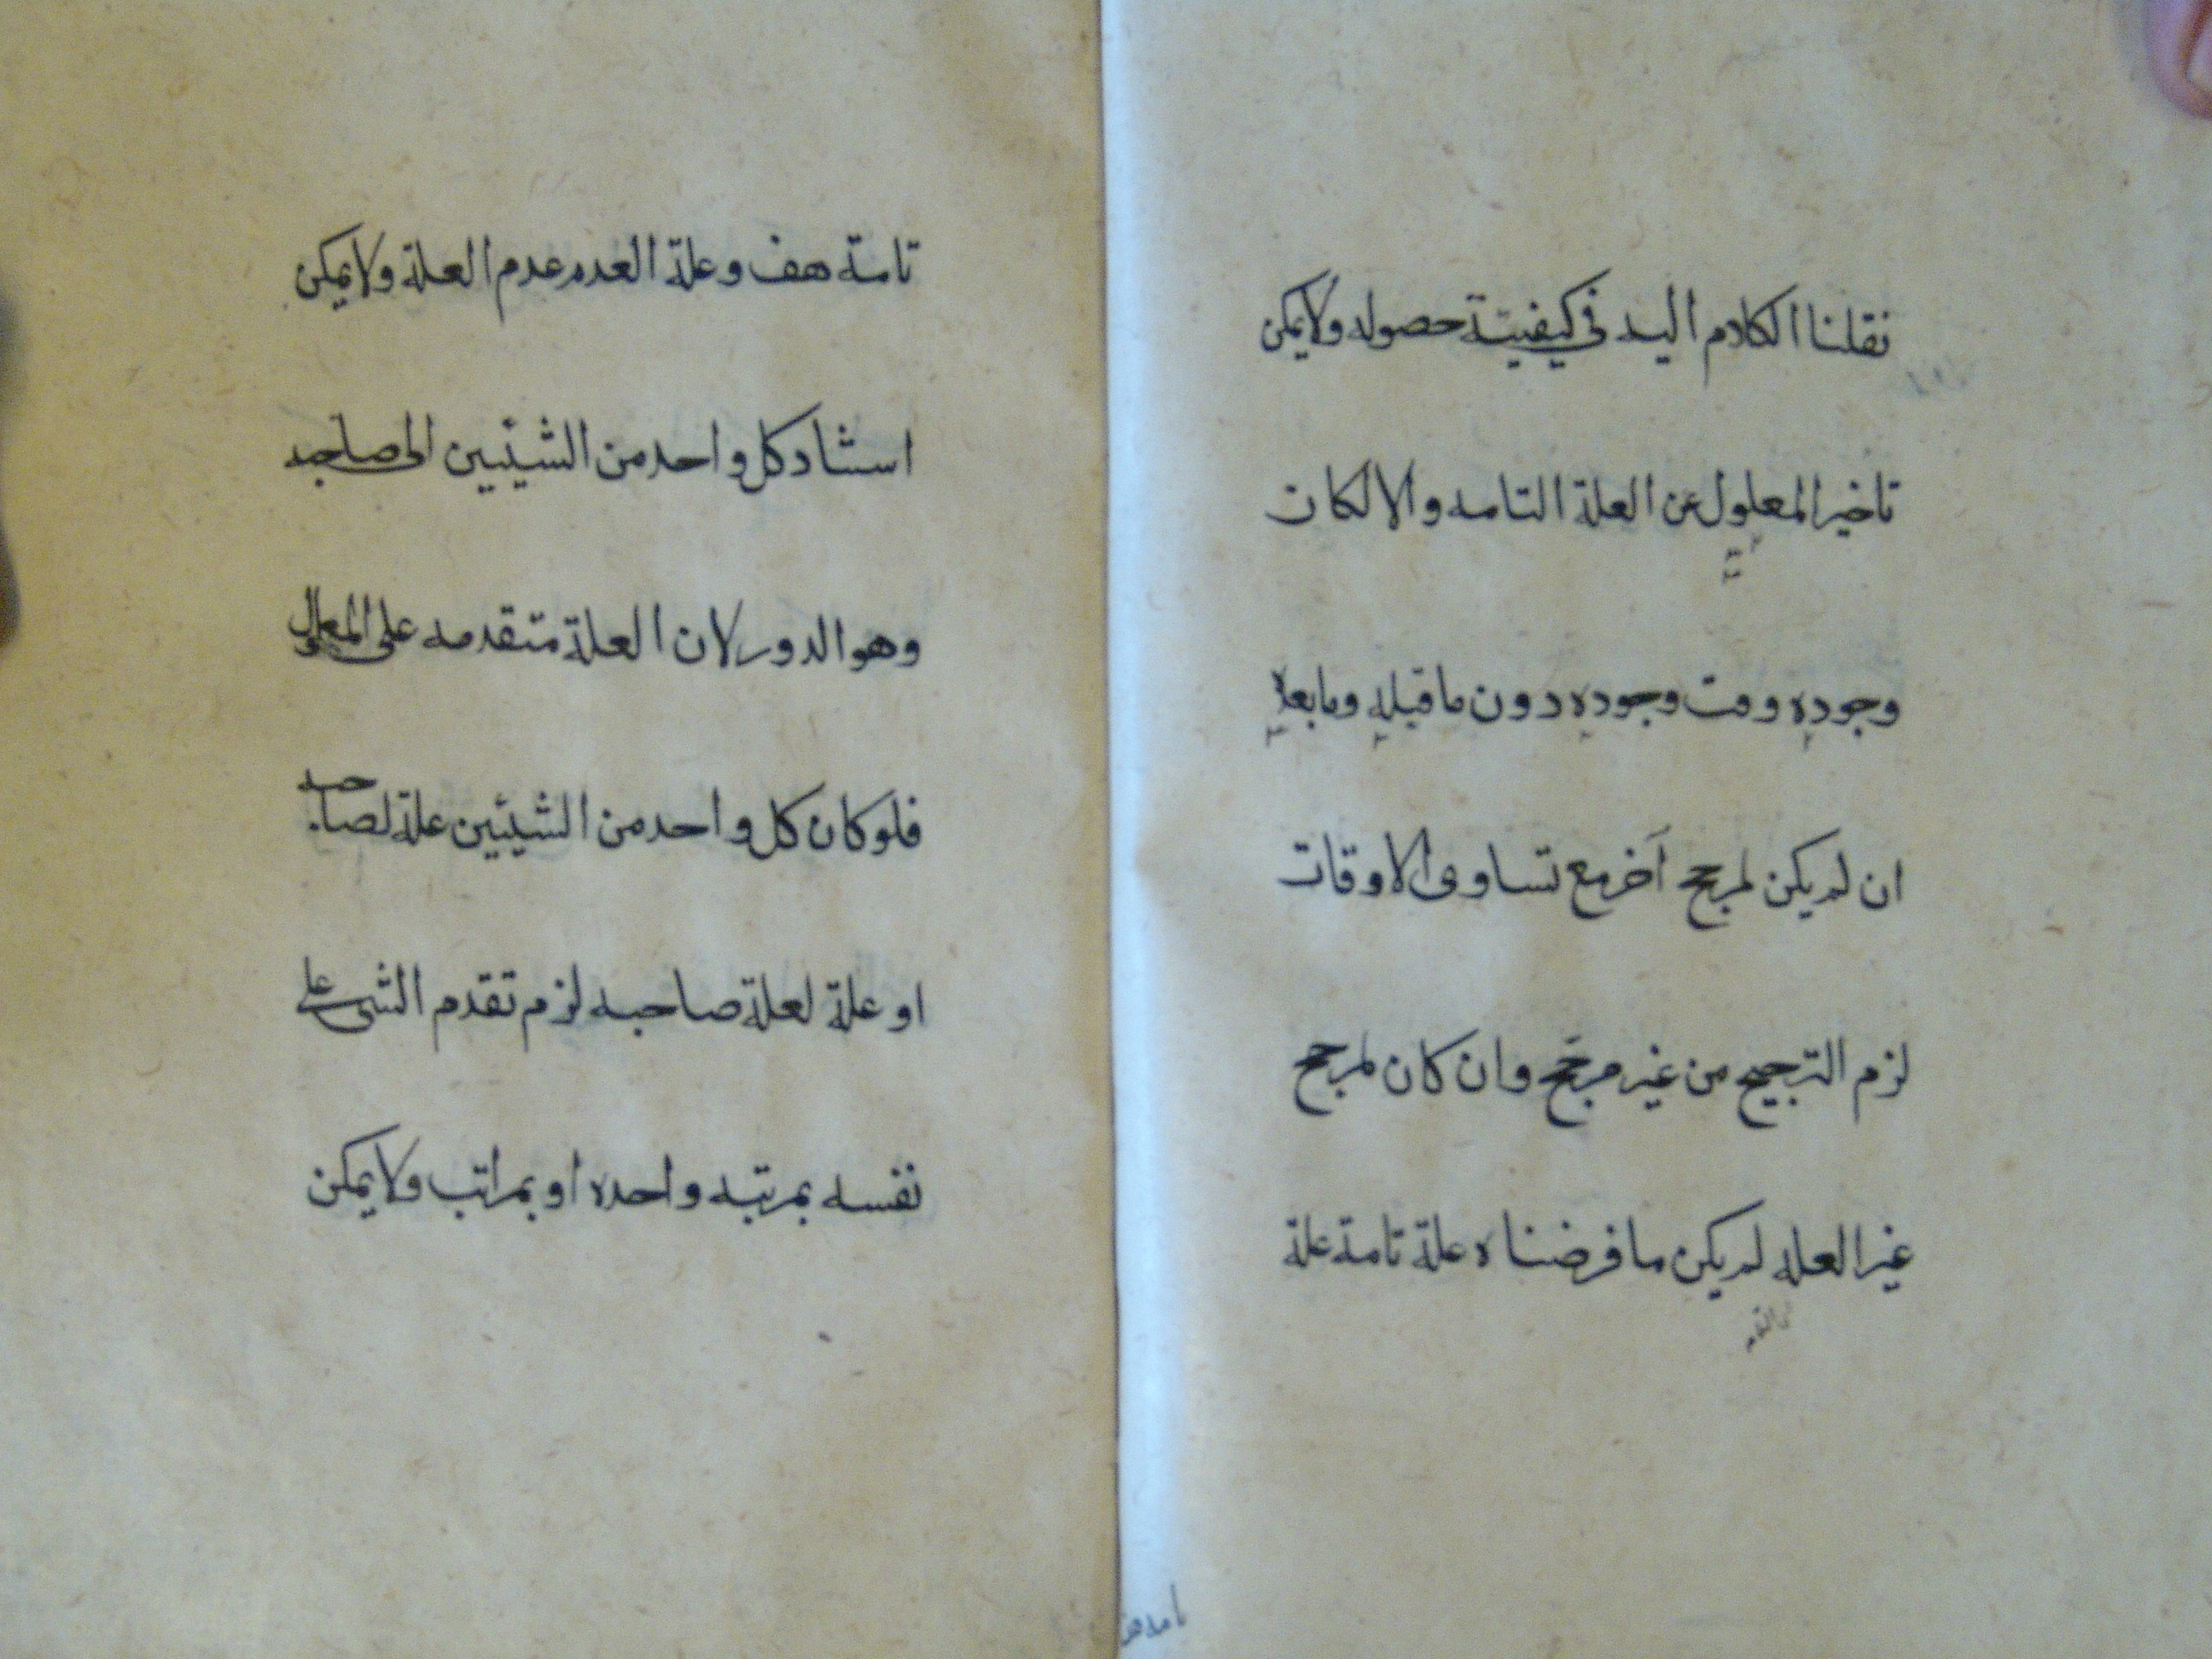 نقلنا الكلام اليه في كيفيتة حصوله ولا يمكن
تاخير المعلول عن العلة التامه والا لكان
وجوده وقت وجوده دون ما قبله وما بعده
ان لم يكن لمرجح آخر مع تساوى الاوقات
لزم الترجيح من غير مرجح وان كان لمرجح
غير العله لم يكن ما فرضناه علة تامة علة
تامه هف
تامة هف وعلة العدم عدم العلة ولا يمكن
استناد كل واحد من الشيئين الى صاحبه
وهو الدور لان العلة متقدمه على المعلول
فلو كان كل واحد من الشيئين علة لصاحبه
او علة لعلة صاحبه لزم تقدم الشى على
نفسه بمرتبه واحده او بمراتب ولا يمكن